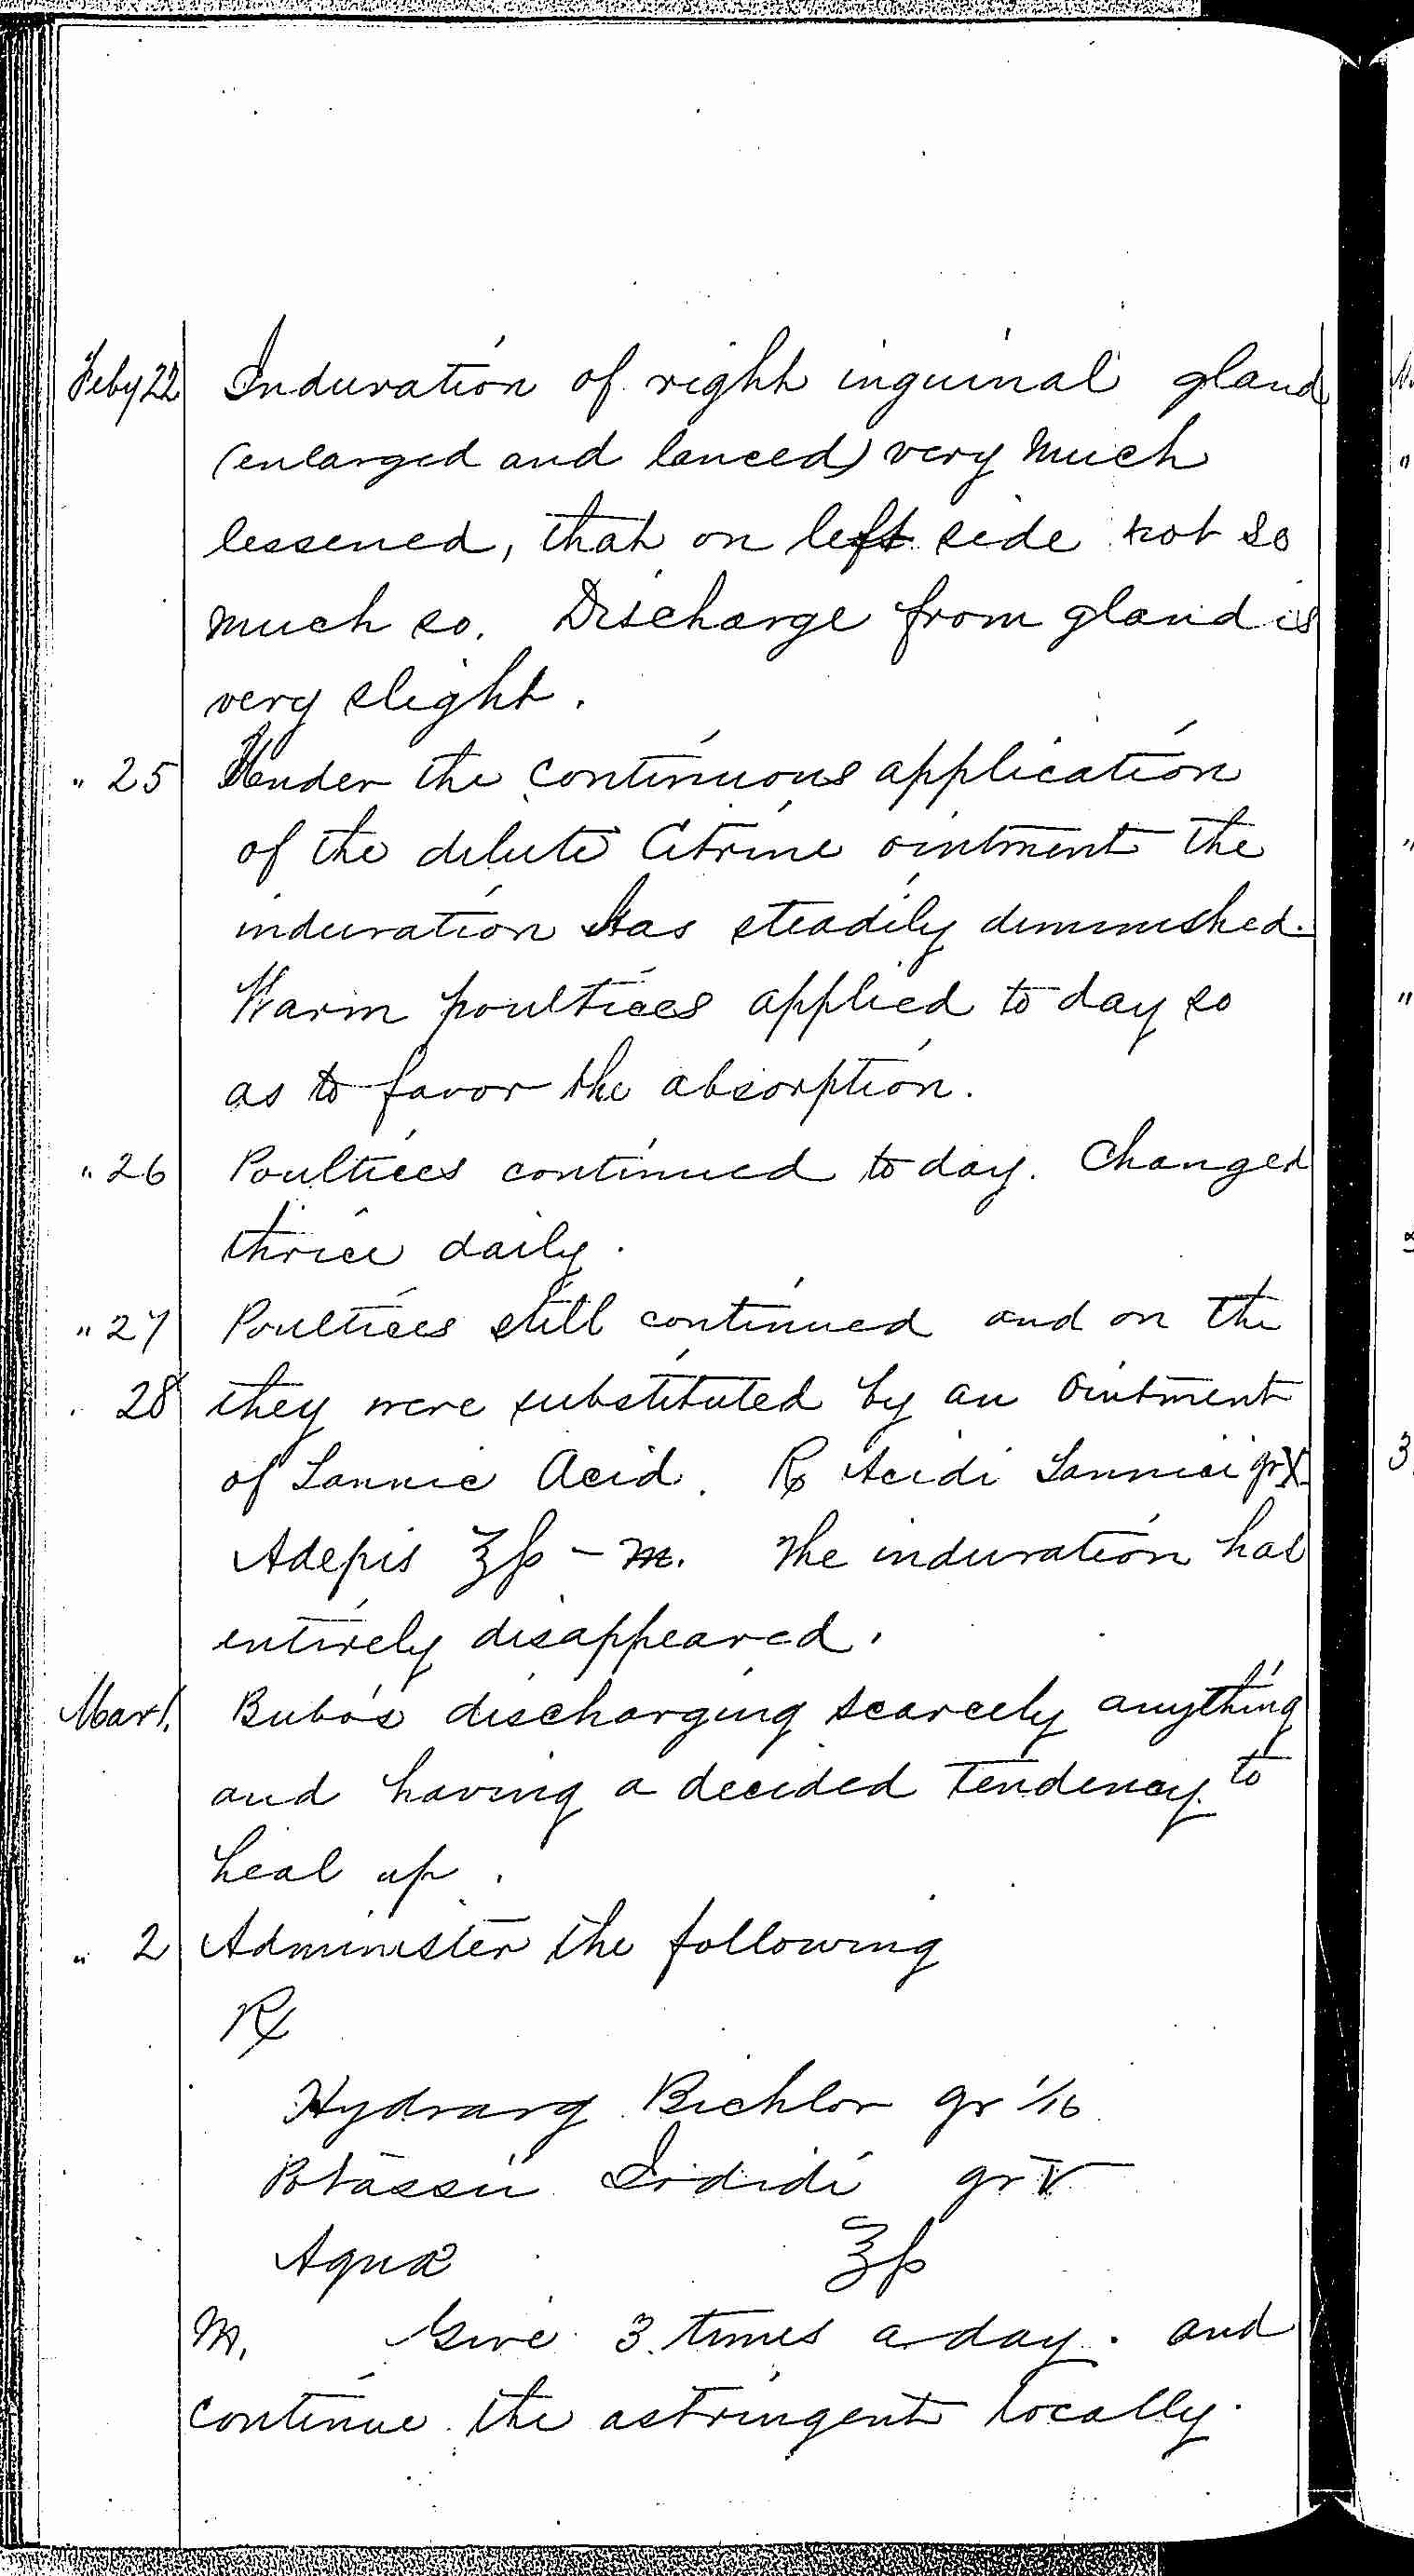 Feby 22 Induration of right inguinal gland
(enlarged and lanced) very much
lessened, that on left side not so
much so. Discharge from gland is
very slight.
" 25 Under the continuous application
of the dilute Citrine ointment the
induration has steadily diminished.
Warm poultices applied to day so
as to favor the absorption.
" 26 Poultices continued to day. Changed
thrice daily.
" 27 Poultices still continued and on the
" 28 they were substituted by an Ointment
of Tannic Acid. ℞ Acidi Tannici gr X
Adepis ℥ß – M. The induration has
entirely disappeared.
Mar 1. Bubo's discharging scarcely anything
and having a decided tendency to
heal up.
" 2 Administer the following
℞
Hydrarg Bichlor gr 1/16
Potassii Iodidi gr V
Aquæ ℥ß
M. Give 3 times a day. and
continue the astringent locally.